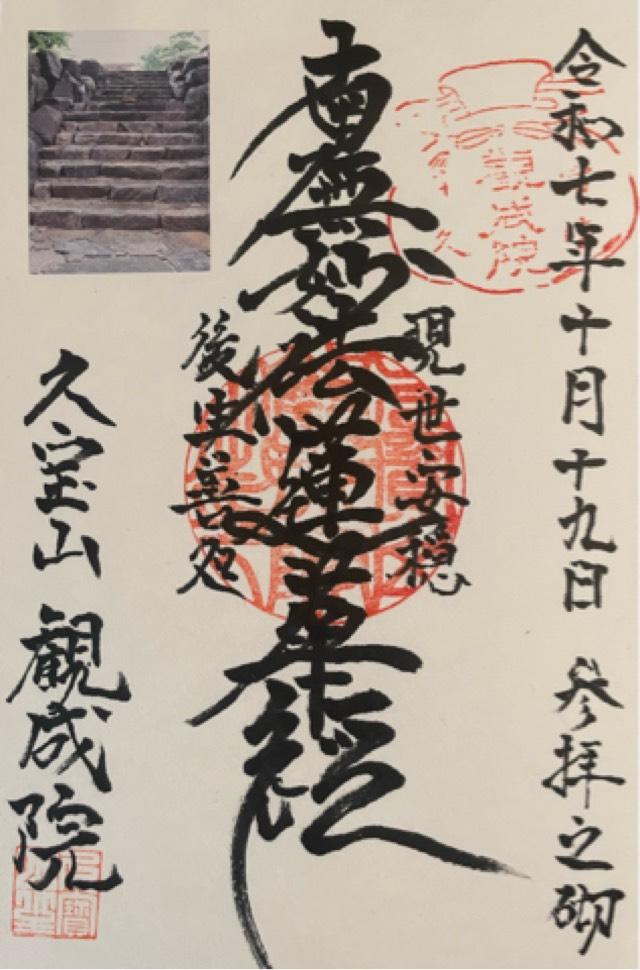 令和七年十月十九日 参拝之砌
現世安穏
南無妙法蓮華経
後生善処
久宝山 観成院
観成院
久